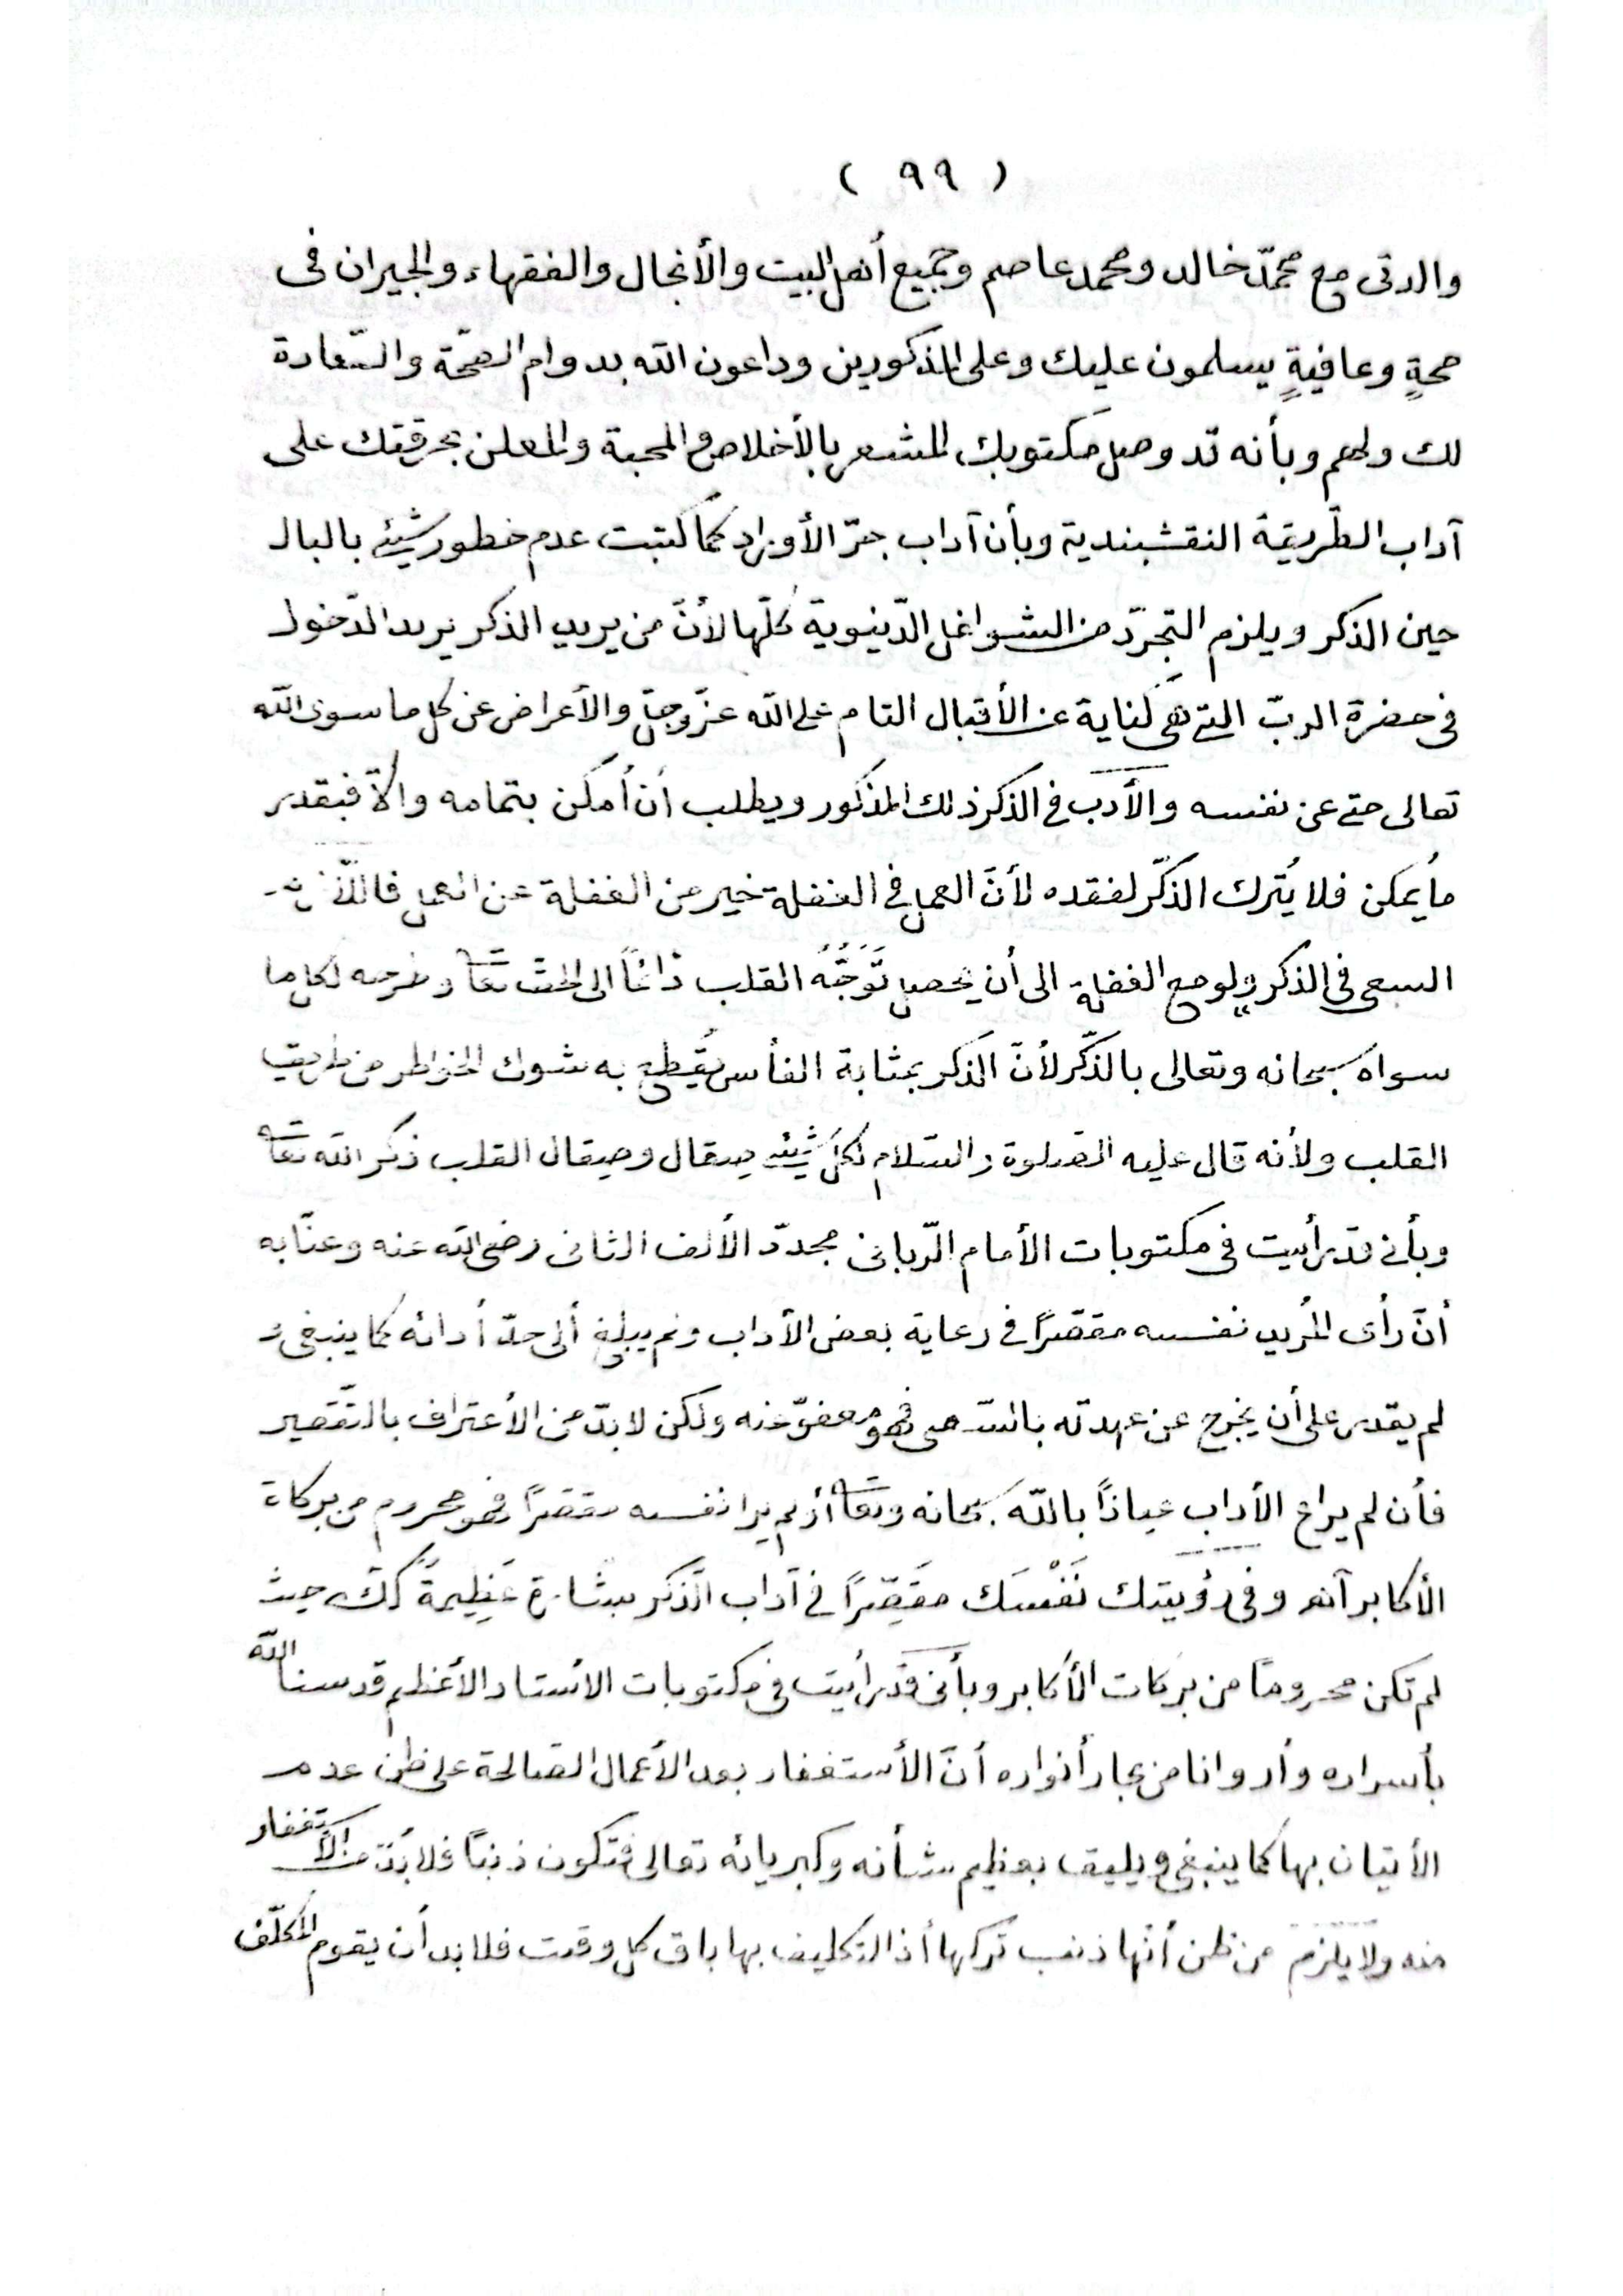 ( ٩٩ )
والدتى مع محمّد خالد ومحمد عاصم وجميع أهل البيت والأنجال والفقهاء والجيران فى
صحةٍ وعافيةٍ يسلمون عليك وعلى المذكورين وداعون الله بدوام الصّحّة والسّعادة
لك ولهم وبأنه قد وصل مكتوبك المشعر بالأخلاص والمحبة والمعلن بحرقتك على
آداب الطّريقة النقشبندية وبأن آداب جرّ الأوراد كما كتبت عدم خطور شيئ بالبال
حين الذكر ويلزم التجرّد من الشواغل الدّينوية كلّها لأنّ من يريد الذكر يريد الدّخول
فى حضرة الربّ التى هى كناية عن الأقبال التام على الله عزّ وجلّ والأعراض عن كل ما سوى الله
تعالى حتى عن نفسه والأدب فى الذكر ذلك المذكور ويطلب أن أمكن بتمامه والاّ فبقدر
ما يُمكن فلا يُترك الذكّر لفقده لأنّ العمل فى الغفلة خير من الغفلة عن العمل
السعى فى الذكر ولو مع الغفلة الى أن يحصل تَوَجُّهُ القلب دائماً الى الحق تعا لكل ما
سواه سبحانه وتعالى بالذّكر لأنّ الذكر بمثابة الفأس يُقطع به شوك الخواطر من طريق
القلب ولأنه قال عليه الصّلوة والسّلام لكلّ شيئ صقال وصقال القلب ذكر الله تعا
وبأنى قد رأيت فى مكتوبات الأمام الرّبانى مجددّ الألف الثانى رضى الله عنه وعنّا به
أنّ رأى المُريد نفسه مقصّراً فى رعاية بعض الأداب ولم يبلغ ألى حدّ أدائه كما ينبغى و
لم يقدر على أن يخرج عن عهدته بالسّعى فهو معفوّ عنه ولكن لا بدّ من الأعتراف بالتّقصير
فأن لم يراع الأداب عياذاً بالله سبحانه وتعا أذ لم يرا نفسه مقصّراً فهو محروم من بركات
الأكابر آنهر وفى رؤيتك نَفْسَك مقَصِّراً فى آداب الذّكر بشارة عَظِيمةً لك حيث
لم تكن محروماً من بركات الأكابر وبأنى قد رأيت فى مكتوبات الأستاد الأعظم قدسنا الله
بأسراره وأروانا من بحار أنواره أنّ الأستغفار بعد الأعمال الصّالحة على ظن عدم
الأتيان بها كما ينبغى ويليق بعظيم شأنه وكبريائه تعالى فتكون ذنبًا فلا بُدّ من الأستغفار
منه ولا يلزم من ظن أنّها ذنب تركها أذ التكليف بها باق كل وقت فلا بد أن يقوم المكلّف